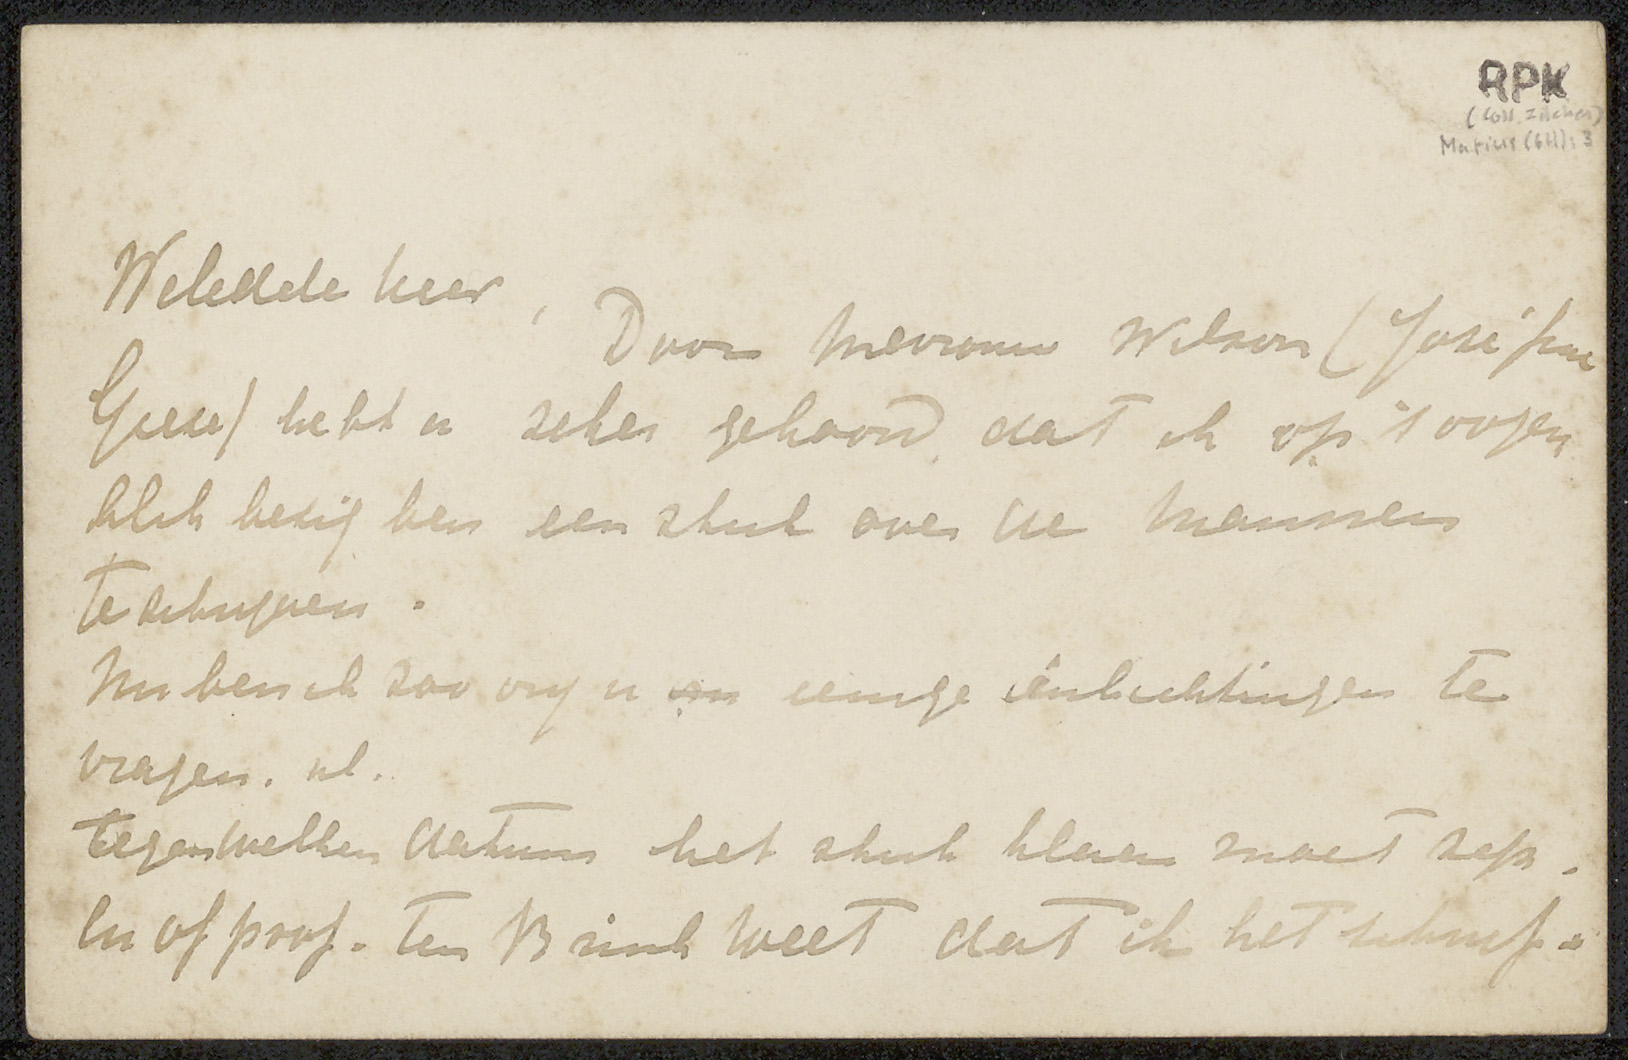 RPK
(Coll. Zilcken)
Marius (GH): 3
Weledele heer,
Door Mevrouw Wilson (Joséfine
Giese) hebt u zeker gehoord dat ik op 't oogen
blik bezig ben een stuk over de Marissen
te schrijven.
Nu ben ik zoo vrij u om eenige inlichtingen te
vragen. nl.
tegen welken datum het stuk klaar moet zijn.
En of prof. ten Brink weet dat ik het schrijf.